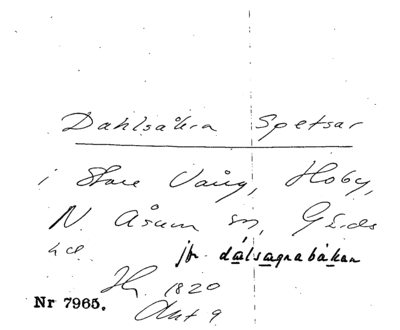 Dahlsåkra Spetsar
i Store Vång, Hoby,
N. Åsum sn, Gärds
hd. jfr dálsagnabåkan
1820
Akt 9
Nr 7965.